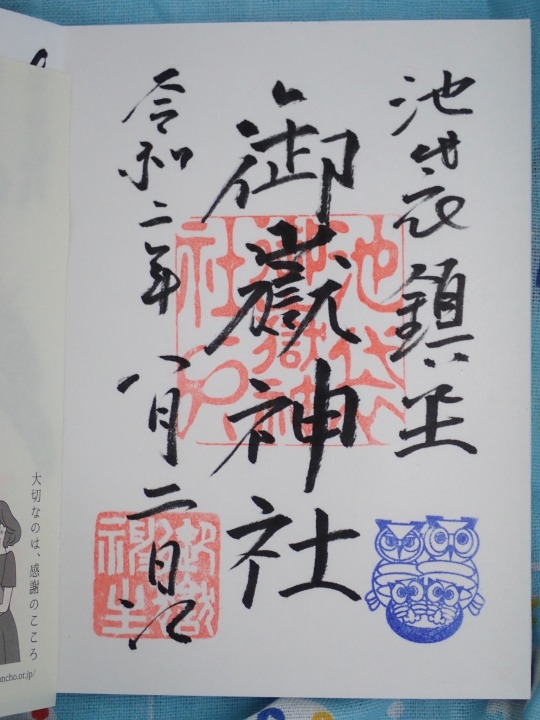 池袋鎮座
御嶽神社
令和二年
八月二日
池袋
御嶽神
社
大切なのは、感謝のこころ
ncho.or.jp/